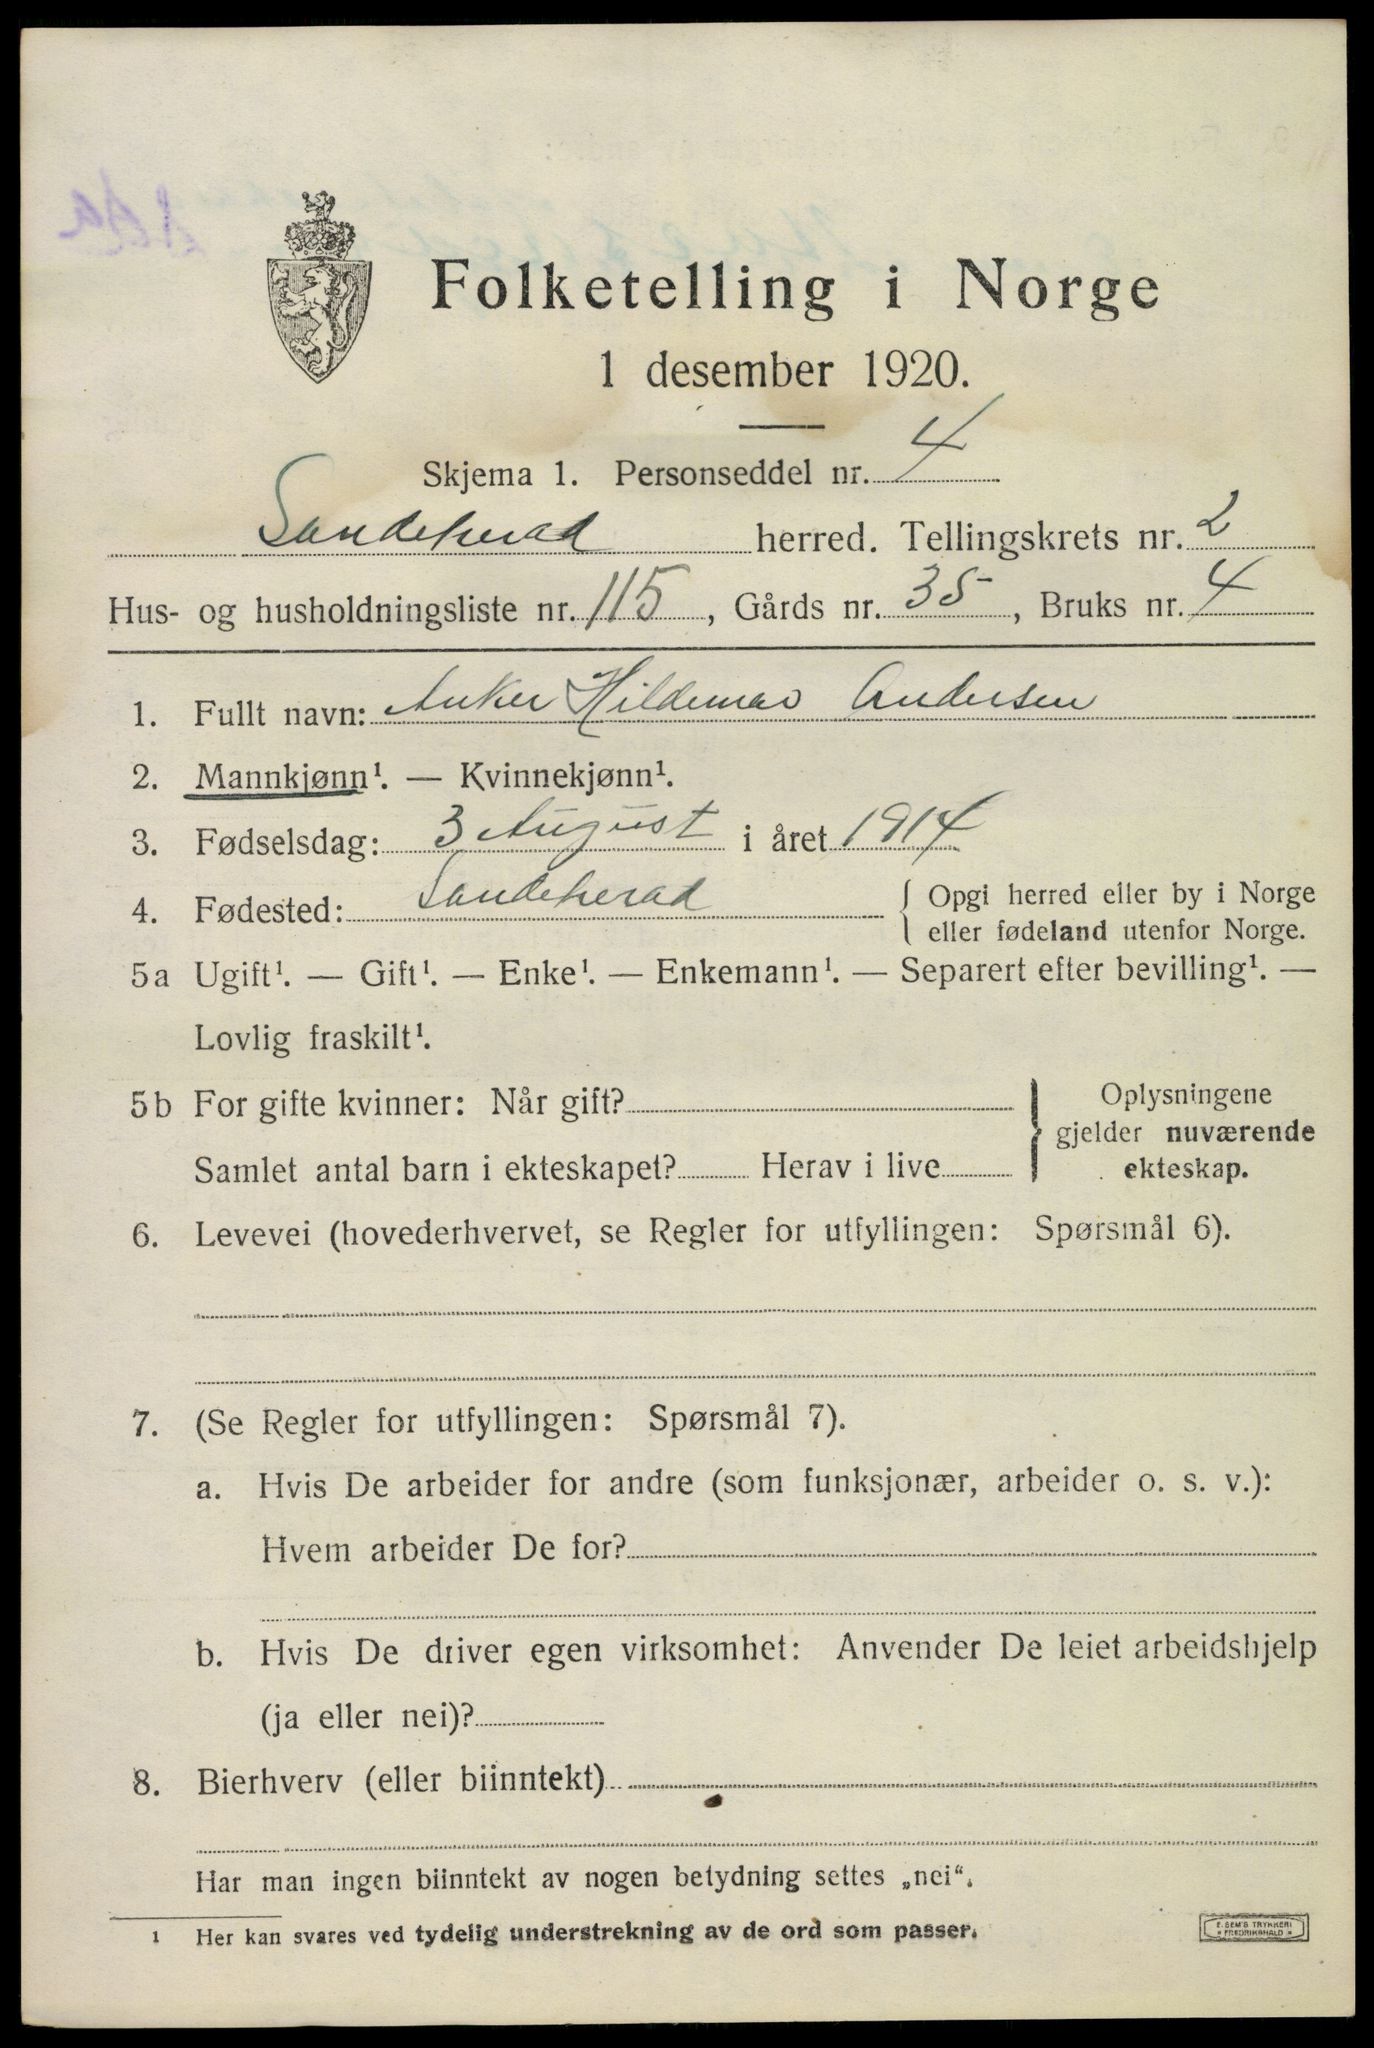 Folketelling i Norge
1 desember 1920.
Skjema 1. Personseddel nr. 4
Sandeherad herred. Tellingskrets nr. 2
Hus- og husholdningsliste nr. 115, Gårds nr. 35, Bruks nr. 4
1. Fullt navn: Anker Hildemar Andersen
2. Mannkjønn¹. — Kvinnekjønn¹.
3. Fødselsdag: 3 August i året 1914
4. Fødested: Sandeherad { Opgi herred eller by i Norge
eller fødeland utenfor Norge.
5a Ugift¹. — Gift¹. — Enke¹. — Enkemann¹. — Separert efter bevilling¹. —
Lovlig fraskilt¹.
5b For gifte kvinner: Når gift?
Samlet antal barn i ekteskapet? Herav i live
} Oplysningene
gjelder nuværende
ekteskap.
6. Levevei (hovederhvervet, se Regler for utfyllingen: Spørsmål 6).
7. (Se Regler for utfyllingen: Spørsmål 7).
a. Hvis De arbeider for andre (som funksjonær, arbeider o. s. v.):
Hvem arbeider De for?
b. Hvis De driver egen virksomhet: Anvender De leiet arbeidshjelp
(ja eller nei)?
8. Bierhverv (eller biinntekt)
Har man ingen biinntekt av nogen betydning settes „nei“.
1 Her kan svares ved tydelig understrekning av de ord som passer.
E. SEM'S TRYKKERI
* FREDRIKSHALD *